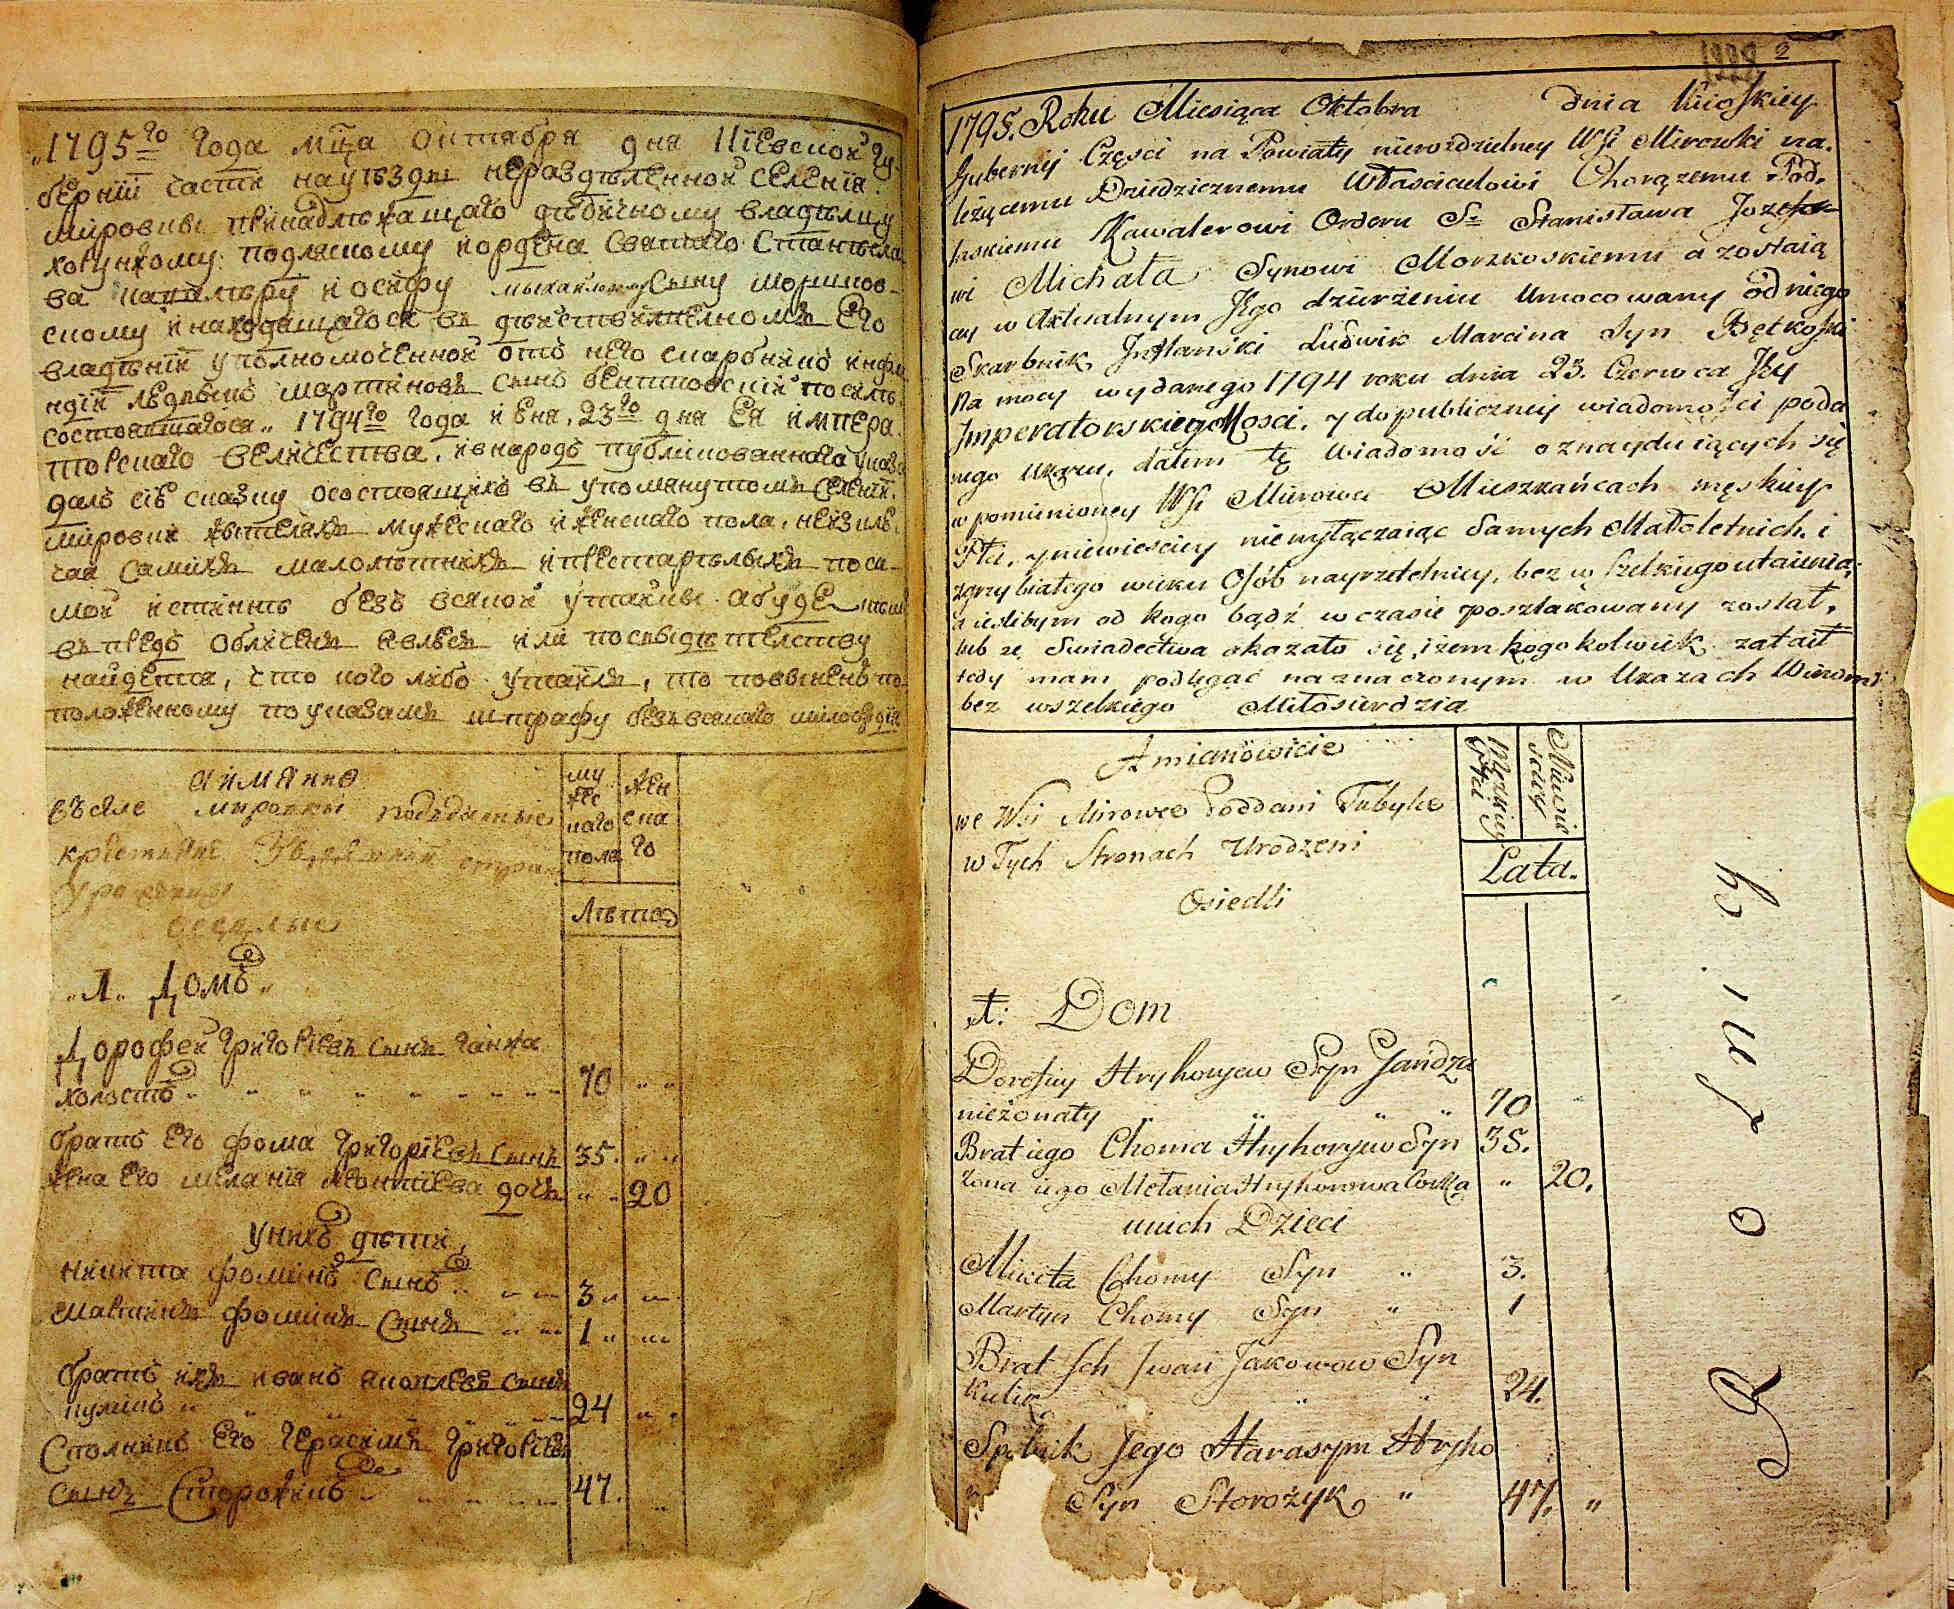 „1795го Года мца Октября дня Кіевской гу-
берніи части на уѣзды нераздѣленной селенія
мировки принадлѣжащаго дѣдичному владѣлцу
хорунжому подляскому и ордена Святаго Станисла-
ва кавалѣру иосифу михайлову Сыну моршков-
скому и находящагося въ дѣйствителномъ Его
владѣніи уполномоченной отъ него скарбникъ инфлян
ндскій людвикъ мартиновъ сынъ бентковскій по силѣ
состоявшагося „ 1794го Года июня 23го дня Ея импера
торскаго величества, и в народъ публикованнаго указа
далъ сію сказку о состоящихъ въ упомянутомъ селеніи
мировки жителяхъ мужескаго и женскаго пола, не изклю-
чая самихъ малолѣтнихъ и престарѣлыхъ по са-
мой истиннѣ безъ всякой утайки. а буде
впредъ обличенъ явлюсь или по свидѣтелству
найдется, что кого либо утаилъ, то повиненъ по-
положенному по указамъ штрафу безъ всякаго милосердія
а имянно
въ селе мировки подданные
крестьяне
урожденцы
оседлые
му
жес
каго
пола
жен
ска
го
Лѣта
„1„ Домъ „
Дорофей григоріевъ сынъ ганжа
холостъ „ „ „ „ „ „ „ 70 „ „
братъ Его фома григоріевъ сынъ 35. „ „
жена Его меланія дочь „ „ 20
У нихъ дѣти,
никита фоминъ сынъ „ „ 3 „ „
мартинъ фоминъ сынъ „ „ 1 „ „
братъ ихъ иванъ яковлевъ сынъ
куликъ „ „ „ „ „ 24 „ „
Сполникъ Его герасимъ григоріевъ
сынъ Сторожикъ „ „ „ „ 47. „
2
1795. Roku Miesiąca Oktobra dnia Kiioskiey
Gubernij Części na Powiaty nierozdzielney WSi Mirowki na-
leżącemu Dziedzicznemu Właścicielowi Chorązemu Pod-
laskiemu Kawalerowi Orderu So Stanisława Jozefo-
wi Michała Synowi Morzkoskiemu a zostaią
cy w Aktualnym Jego dzierżeniu Umocowany od niego
Skarbnik Inflanski Ludwik Marcina Syn Bętkoski
Na mocy wydanego 1794 roku dnia 23. Czerwca Jey
Imperatorskiey Mosci, y do publiczney wiadomości poda
nego Ukazu, datem tę Wiadomość o znayduiących się
w pomienioney WSi Mirowce Mieszkańcach męskiey
Płci, y niewieściey niewyłączaiąc Samych Małoletnich i
zgrzybiałego wieku Osób nayrzetelniey, bez wszelkiego utaienia;
a ieslibym od kogo bądź w czasie poszlakowany został,
lub ze Swiadectwa okazało się, iżem kogokolwiek zataił
tedy mam podlegać naznaczonym w Ukazach Winom
bez wszelkiego Miłosierdzia
Amianowicie
we WSi Mirowce Poddani Tubylce
w Tych Stronach Urodzeni
Osiedli
Męzkiey
Płci
Niewie
sciey
Lata.
1: Dom
Dorofiey Hryhoryew Syn Jandza
nieżonaty „ „ „ „ 70
Brat iego Choma Hryhoryew Syn 35.
Zona iego Melania Hryhorowa Corka „ 20.
unich Dzieci
Mikita Chomy Syn „ 3.
Martyn Chomy Syn „ 1
Brat Ich Iwan Jakowow Syn
Kulik „ „ 24.
Spolnik Jego Harasym Hryho
Syn Storożyk „ 47. „